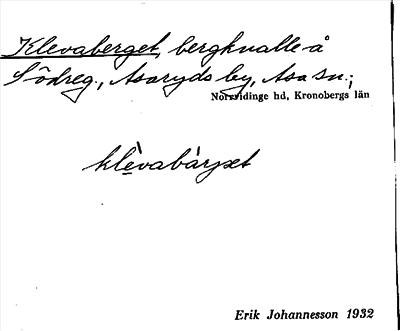 Klevaberget, bergknalle å
Södreg., Asaryds by, Asa sn.;
Norrvidinge hd, Kronobergs län
klèvabàryet
Erik Johannesson 1932